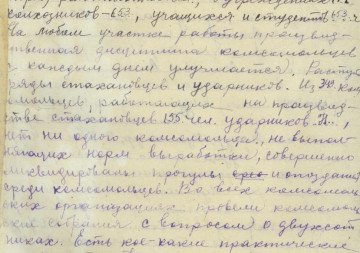 колхозников-153, учащихся и студентов 153 я
На любом участке работы производ-
ственная дисциплина комсомольцев
с каждым днем улучшается. Растут
ряды стахановцев и ударников. Из ком
сомольцев, работающих на производ-
стве стахановцев 155 чел. ударников
нет ни одного комсомольца, не выпол-
няющих норм выработки, совершенно
ликвидированы прогулы и опоздания
среди комсомольцев. Во всех комсомоль-
ских организациях провели комсомоль
ские собрания с вопросом О двухсот
никах. Есть кое-какие практические